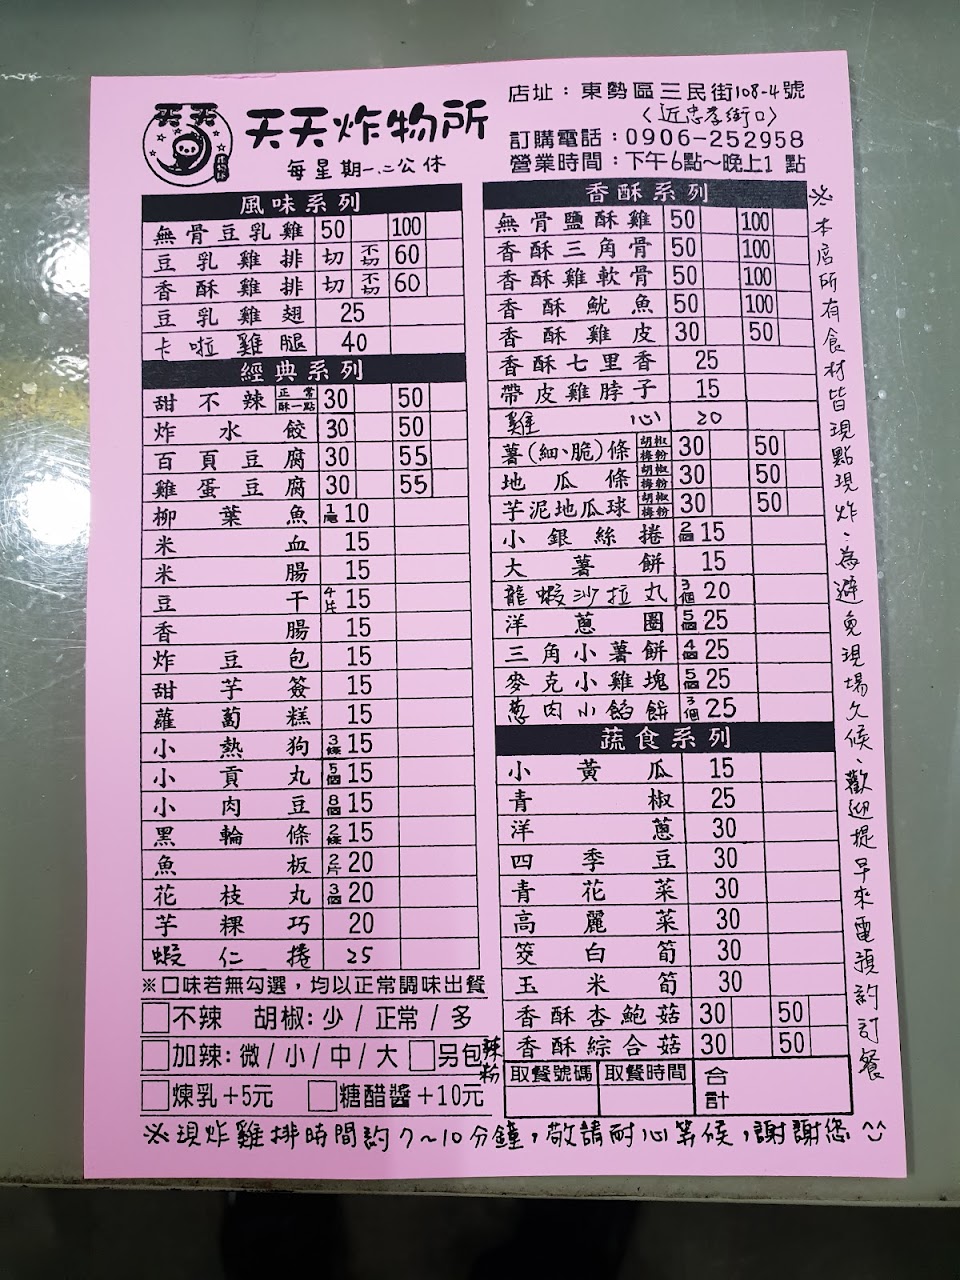 天天
炸物所
天天炸物所
每星期一.二公休
店址：東勢區三民街108-4號
〈近忠孝街口〉
訂購電話：0906-252958
營業時間：下午6點～晚上1 點
風味系列
無骨豆乳雞 50 100
豆乳雞排 切 不切 60
香酥雞排 切 不切 60
豆乳雞翅 25
卡啦雞腿 40
經典系列
甜不辣 正常 酥一點 30 50
炸水餃 30 50
百頁豆腐 30 55
雞蛋豆腐 30 55
柳葉魚 1尾 10
米血 15
米腸 15
豆干 4片 15
香腸 15
炸豆包 15
甜芋簽 15
蘿蔔糕 15
小熱狗 3條 15
小貢丸 5個 15
小肉豆 8個 15
黑輪條 2條 15
魚板 2片 20
花枝丸 3個 20
芋粿巧 20
蝦仁捲 25
※口味若無勾選，均以正常調味出餐
□不辣 胡椒:少/正常/多
□加辣:微/小/中/大 □另包辣粉
□煉乳+5元 □糖醋醬+10元
香酥系列
無骨鹽酥雞 50 100
香酥三角骨 50 100
香酥雞軟骨 50 100
香酥魷魚 50 100
香酥雞皮 30 50
香酥七里香 25
帶皮雞脖子 15
雞心 20
薯(細、脆)條 胡椒 梅粉 30 50
地瓜條 胡椒 梅粉 30 50
芋泥地瓜球 胡椒 梅粉 30 50
小銀絲捲 2個 15
大薯餅 15
龍蝦沙拉丸 3個 20
洋蔥圈 5個 25
三角小薯餅 4個 25
麥克小雞塊 5個 25
蔥肉小餡餅 3個 25
蔬食系列
小黃瓜 15
青椒 25
洋蔥 30
四季豆 30
青花菜 30
高麗菜 30
筊白筍 30
玉米筍 30
香酥杏鮑菇 30 50
香酥綜合菇 30 50
取餐號碼 取餐時間 合計
※本店所有食材皆現點現炸、為避免現場久候、歡迎提早來電預約訂餐
※現炸雞排時間約7~10分鐘，敬請耐心等候，謝謝您^^